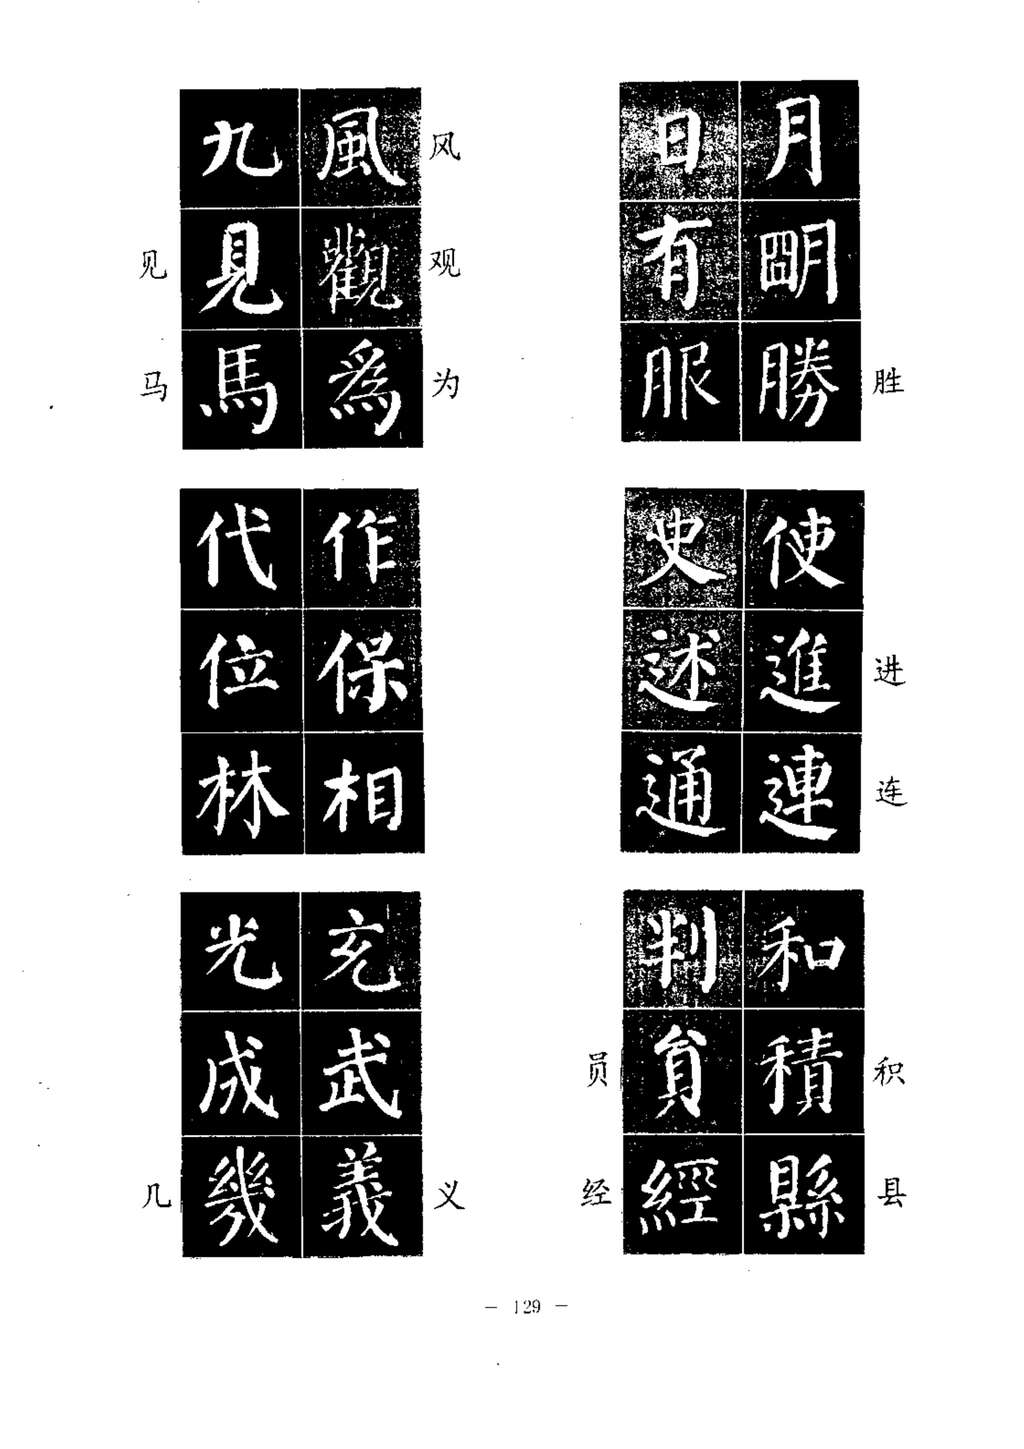 九風 风
见 見觀 观
马 馬為 为
日月
有明
服勝 胜
代作
位保
林相
史使
述進 进
通連 连
光充
成武
几 幾義 义
判和
员 員積 积
经 經縣 县
— 129 —